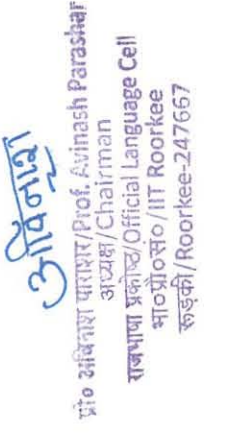 अविनाश
प्रो० अविनाश पाराशर/Prof. Avinash Parashar
अध्यक्ष/Chairman
राजभाषा प्रकोष्ठ/Official Language Cell
भा०प्रौ०सं०/IIT Roorkee
रूड़की/Roorkee-247667